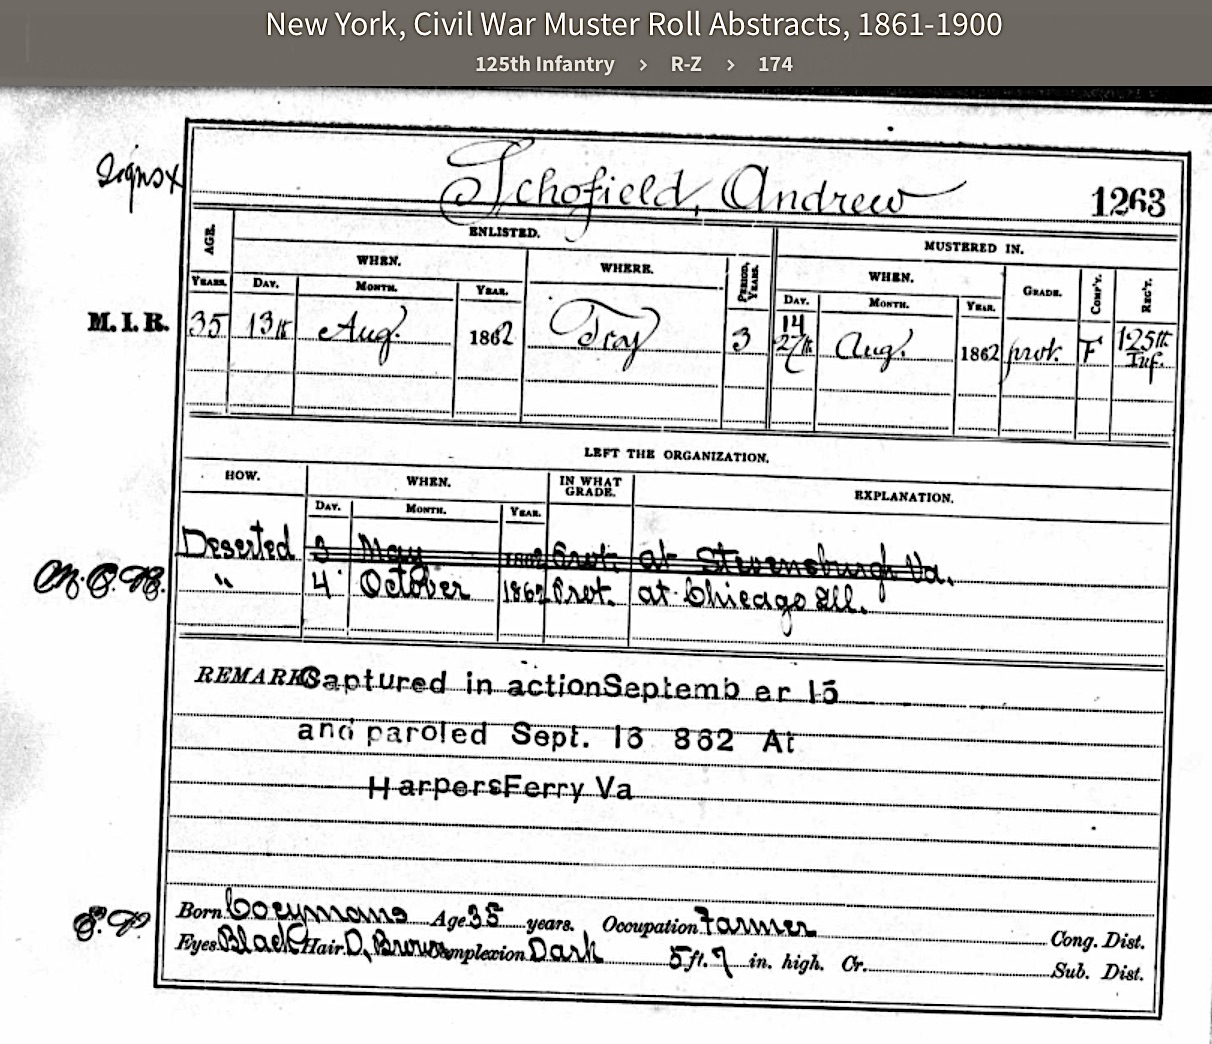 New York, Civil War Muster Roll Abstracts, 1861-1900
125th Infantry > R-Z > 174
Signs x
Schofield, Andrew 1263
AGE. ENLISTED. MUSTERED IN.
WHEN. WHERE. PERIOD, YEARS. WHEN. GRADE. COMP'Y. REG'T.
YEARS. DAY. MONTH. YEAR. DAY. MONTH. YEAR.
14
M. I. R. 35 13th Aug. 1862 Troy 3 27th Aug. 1862 prvt. F 125th
Inf.
LEFT THE ORGANIZATION.
HOW. WHEN. IN WHAT GRADE. EXPLANATION.
DAY. MONTH. YEAR.
Deserted 3 May Prvt. at Stevensburgh Va.
" 4 October 1862 Prvt. at Chicago Ill.
REMARKS Captured in action September 15
and paroled Sept. 16 862 At
Harpers Ferry Va
Born Coeymans Age 35 years. Occupation Farmer Cong. Dist.
Eyes Black Hair D. Brown Complexion Dark 5 ft. 7 in. high. Cr. Sub. Dist.